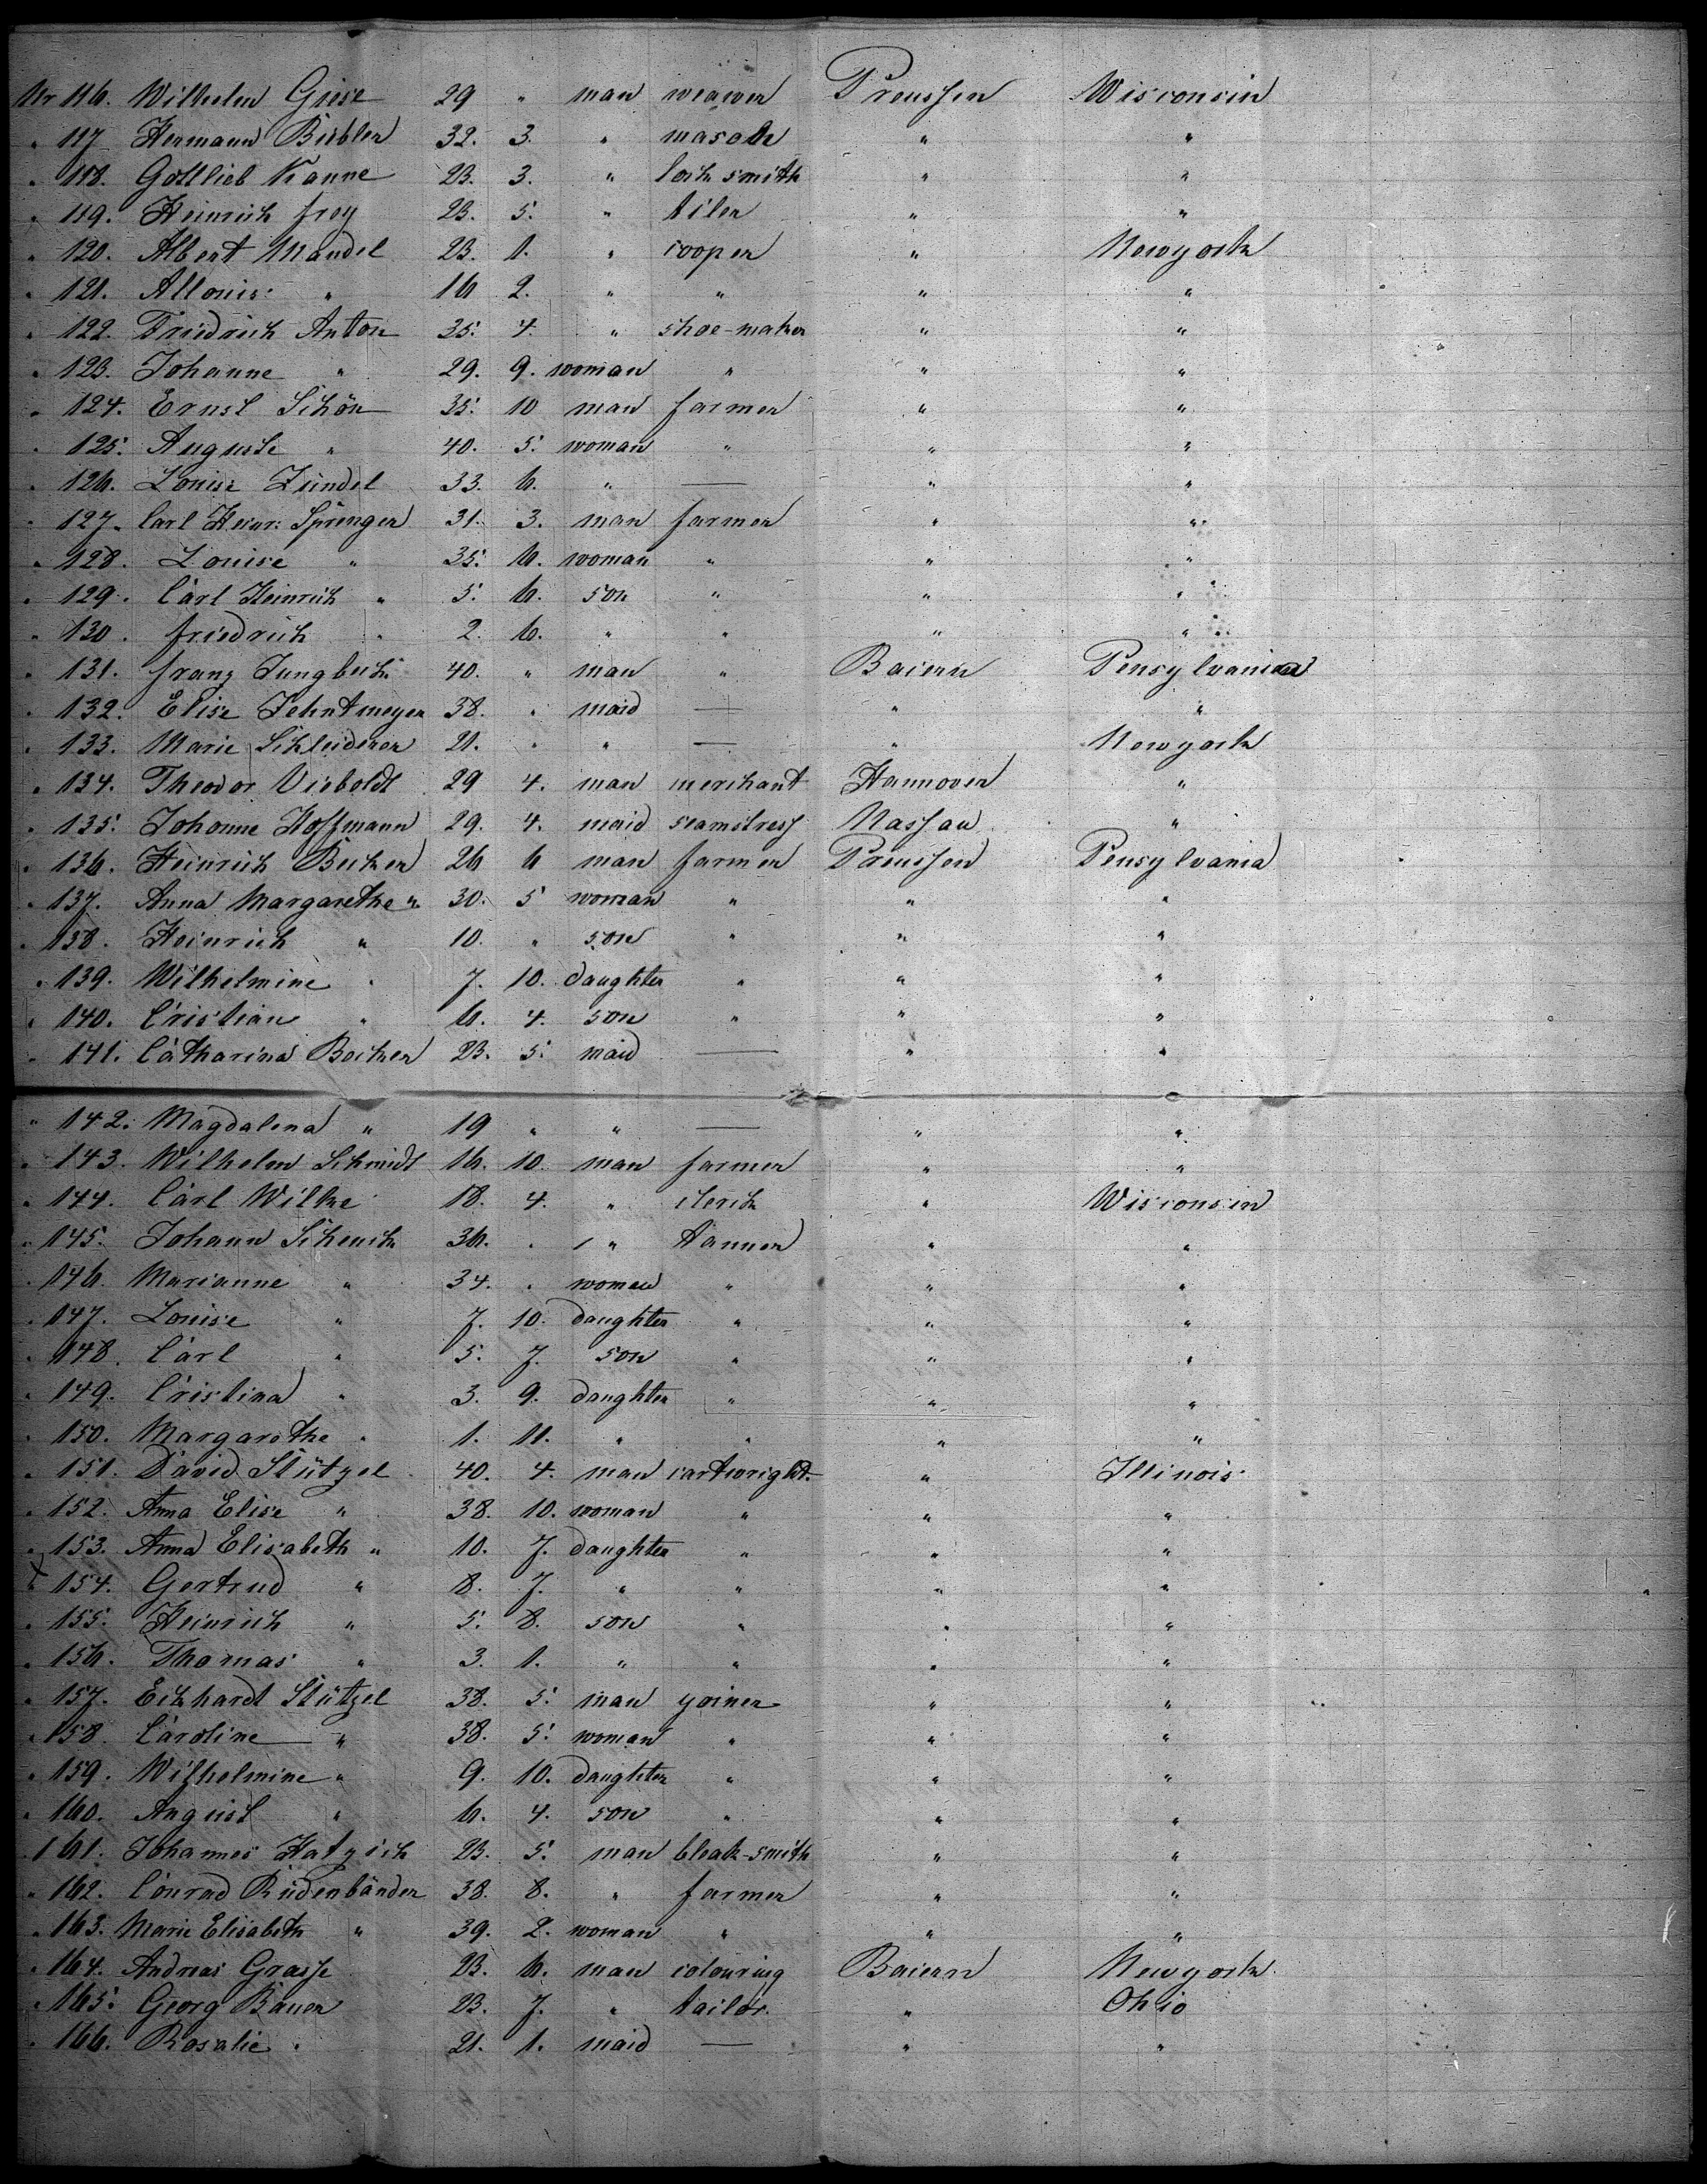 Nr 116. Wilhelm Giese 29 " man weawer Preussen Wisconsin
" 117 Hermann Biebler 32. 3. " mason " "
" 118. Gottlieb Kanne 23. 3. " lock smith " "
" 119. Heinrich Frey 23. 5. " tiler " "
" 120. Albert Mandel 23. 1. " cooper " Newyork
" 121. Allouis " 16 2. " " " "
" 122. Friedrich Anton 35. 4. " shoe-maker " "
" 123. Johanne " 29. 9. woman " " "
" 124. Ernst Schön 35. 10 man farmer " "
" 125. Auguste " 40. 5. woman " " "
" 126. Louise Zündel 33. 6. " — " "
" 127. Carl Heinr: Sprenger 31. 3. man farmer " "
" 128. Louise " 35. 6. woman " " "
" 129. Carl Heinrich " 5. 6. son " " "
" 130. Friedrich " 2. 6. " " " "
" 131. Franz Jungbeck 40. " man " Baiern Pensylvania
" 132. Elise Zehntmeyer 38. " maid — " "
" 133. Marie Schleiderer 21. " " — " Newyork
" 134. Theodor Vieboldt 29 4. man merchant Hannover "
" 135. Johanne Hoffmann 29. 4. maid seamstress Nassau "
" 136. Heinrich Becker 26 6 man farmer Preussen Pensylvania
" 137. Anna Margarethe " 30. 5 woman " " "
" 138. Heinrich " 10. " son " " "
" 139. Wilhelmine " 7. 10. daughter " " "
" 140. Cristian " 6. 4. son " " "
" 141. Catharina Becker 23. 5. maid — " "
" 142. Magdalena " 19 " " — " "
" 143. Wilhelm Schmidt 16. 10. man farmer " "
" 144. Carl Wilke 18. 4. " clerck " Wisconsin
" 145. Johann Schenck 36. " " tanner " "
" 146. Marianne " 34. " woman " " "
" 147. Louise " 7. 10. daughter " " "
" 148. Carl " 5. 7. son " " "
" 149. Cristina " 3. 9. daughter " " "
" 150. Margarethe " 1. 11. " " " "
" 151. David Stützel 40. 4. man cartwright " Illinois
" 152. Anna Elise " 38. 10. woman " " "
" 153. Anna Elisabeth " 10. 7. daughter " " "
" 154. Gertrud " 8. 7. " " " "
" 155. Heinrich " 5. 8. son " " "
" 156. Thomas " 3. 1. " " " "
" 157. Eckhardt Stützel 38. 5. man yoiner " "
" 158. Caroline " 38. 5. woman " " "
" 159. Wilhelmine " 9. 10. daughter " " "
" 160. August " 6. 4. son " " "
" 161. Johannes Hatzich 23. 5. man bleak-smith " "
" 162. Conrad Rüdenbänder 38. 8. " farmer " "
" 163. Marie Elisabeth " 39. 2. woman " " "
" 164. Andreas Grasse 23. 6. man colouring Baiern Newyork
" 165. Georg Bauer 23. 7. " tailor " Ohio
" 166. Rosalie " 21. 1. maid — " "